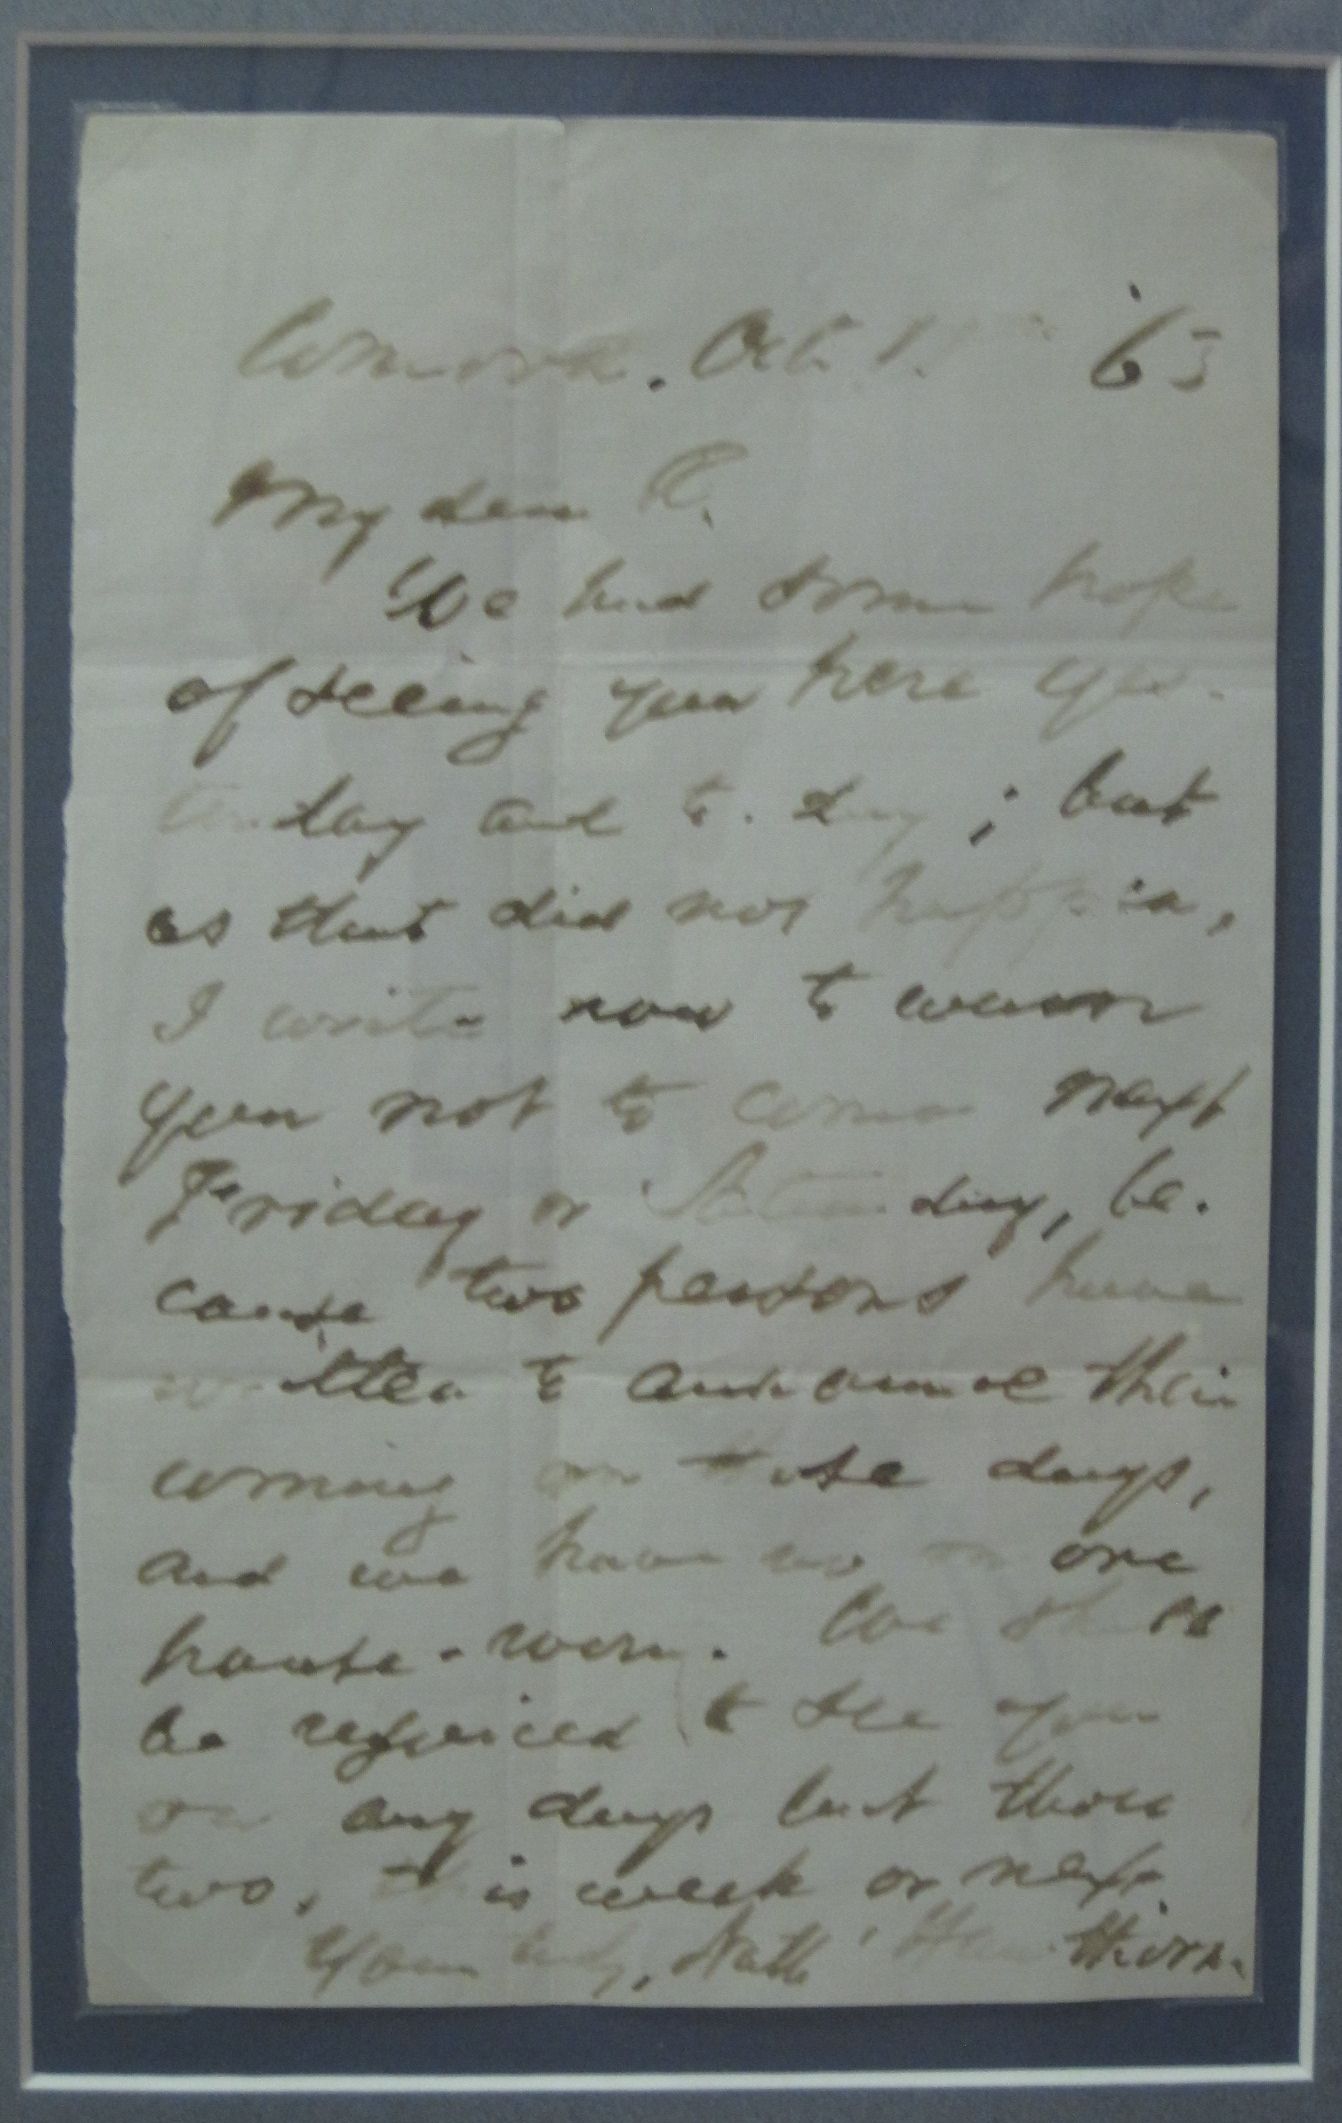 Concord. Oct. '63
My dear
We had some hope
of seeing you here yes-
terday and to-day; but
as that did not happen,
I write now to warn
you not to come next
Friday or Saturday, be-
cause two persons have
written to announce their
coming on those days,
and we have no more
house-room. We shall
be rejoiced to see you
on any days but those
two, this week or next.
Yours truly, Nath' Hawthorne